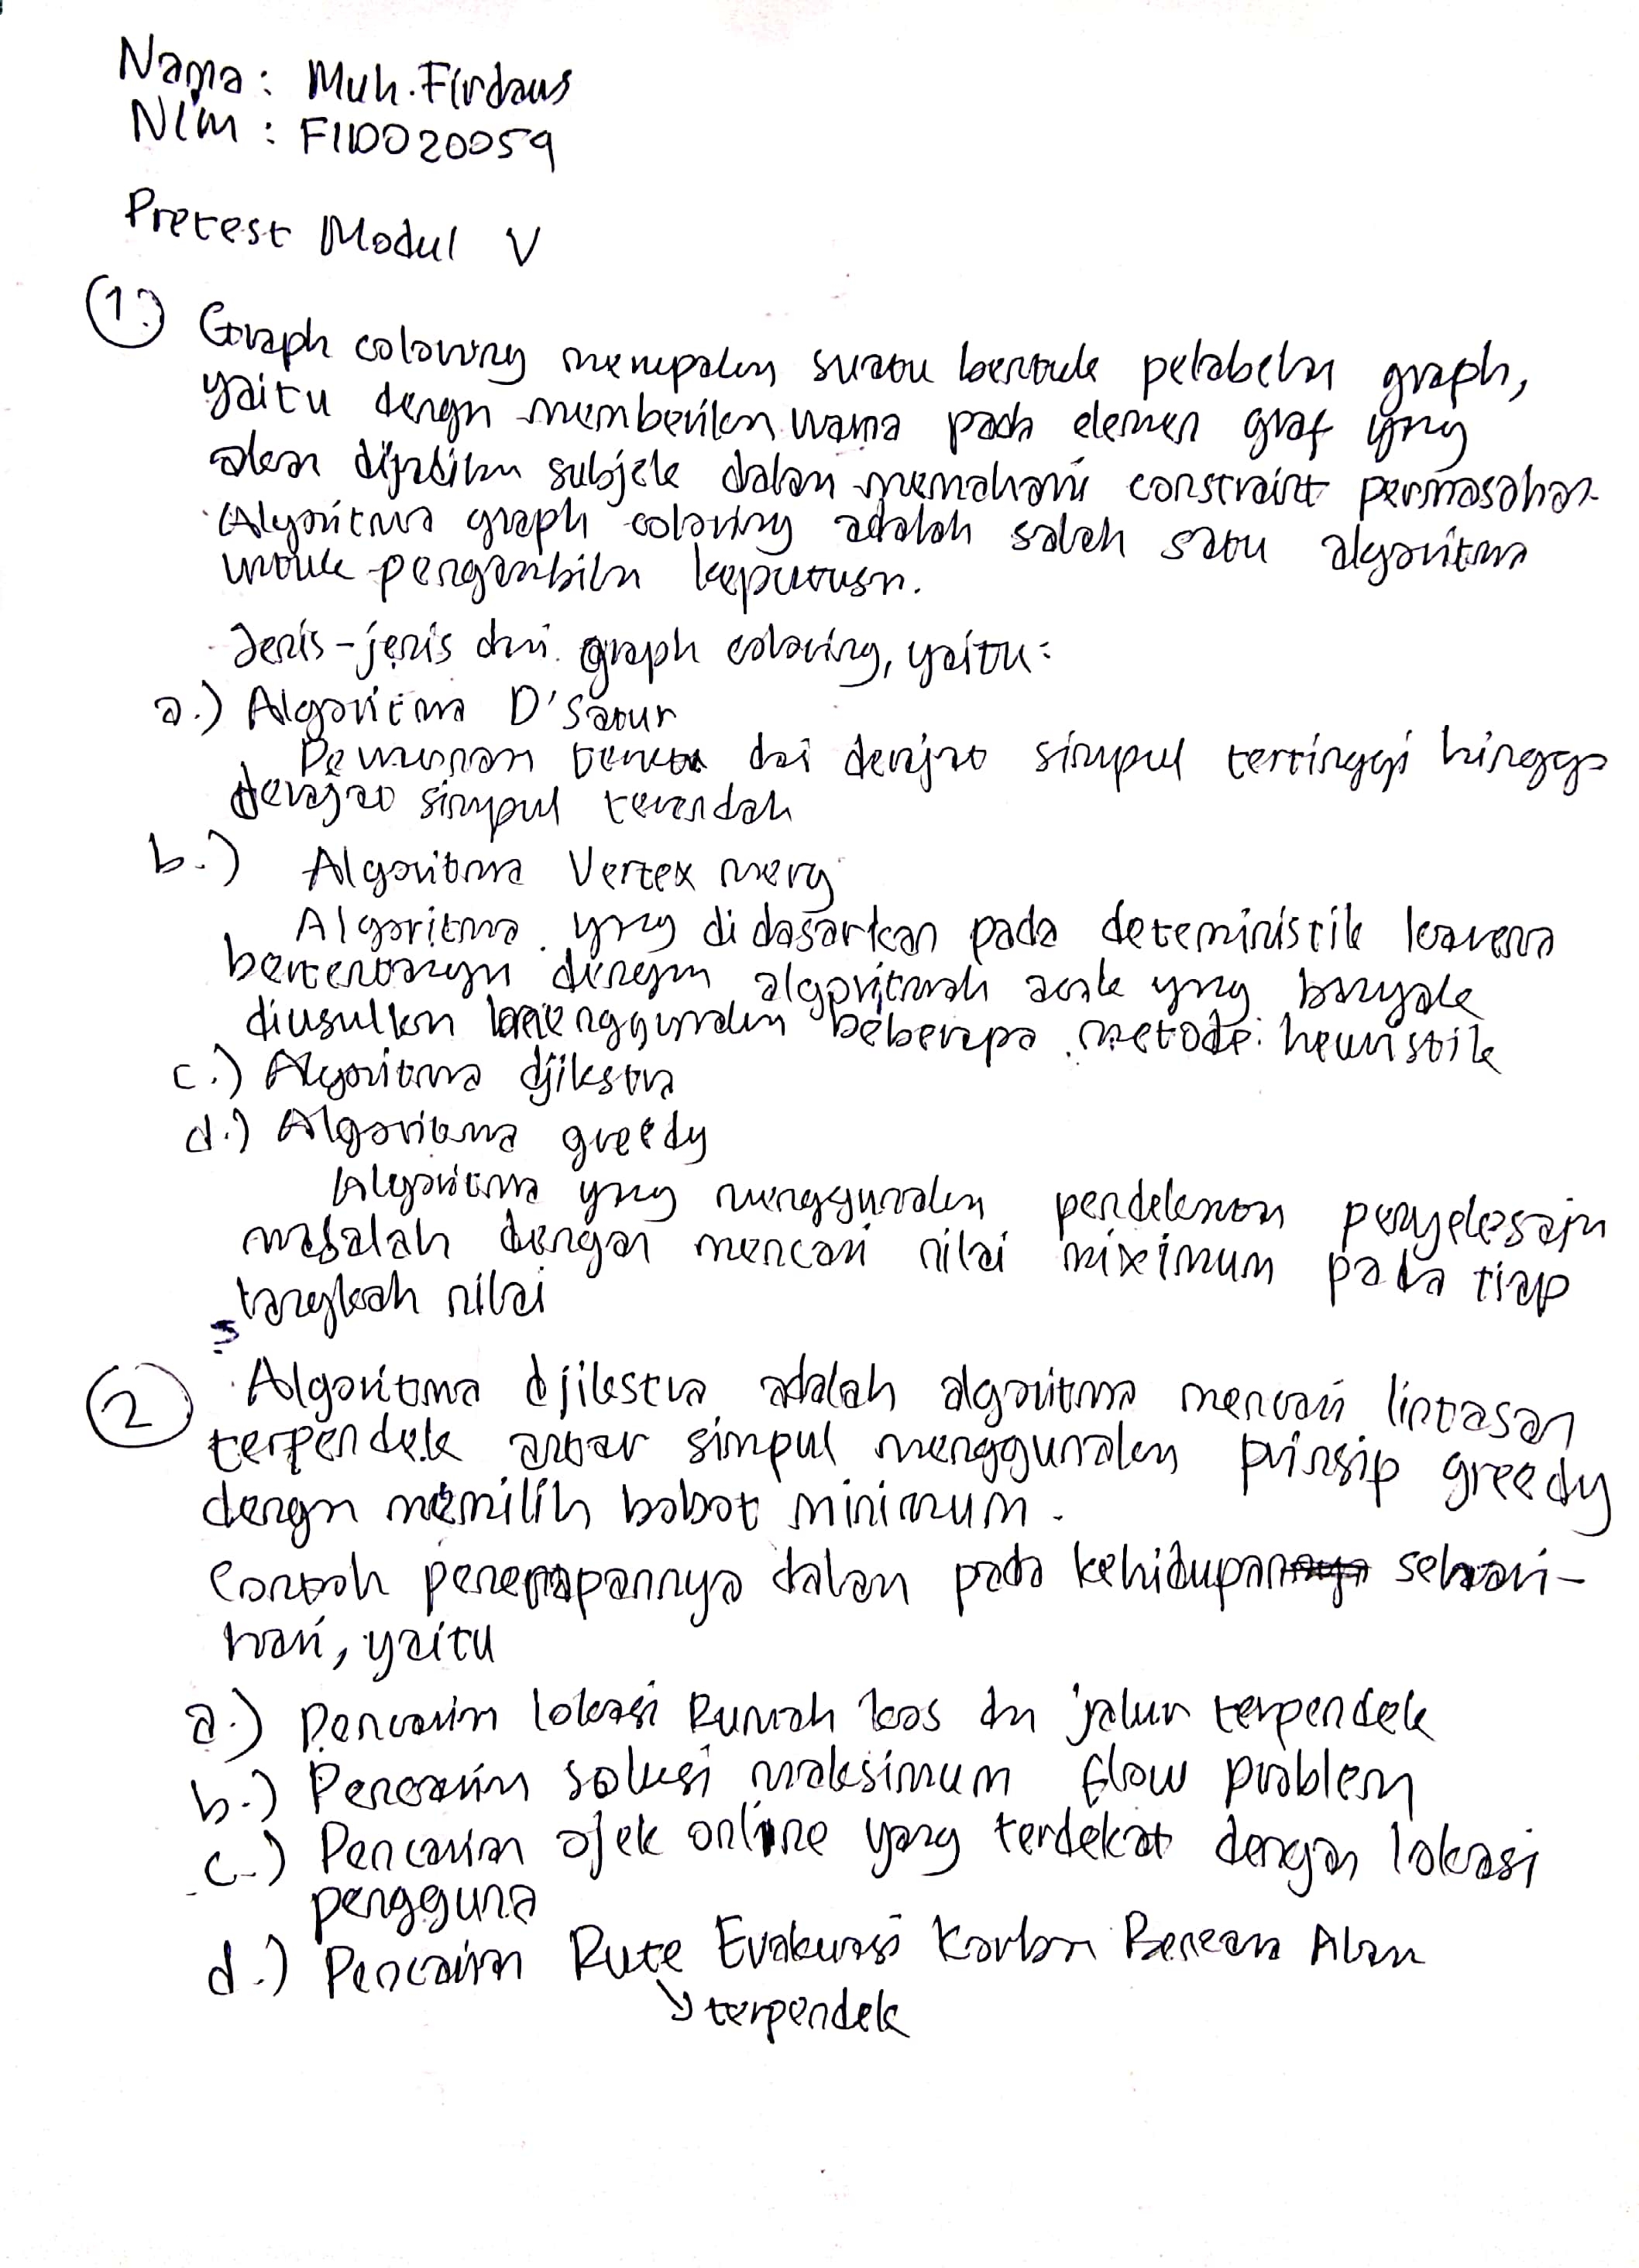 Nama : Muh. Firdaus
Nim : F1D020059
Pretest Modul V
1.) Graph coloring merupakan suatu bentuk pelabelan graph,
yaitu dengan memberikan warna pada elemen graf yang
akan dijadikan subjek dalam memahami constraint permasahan
Algoritma graph coloring adalah salah satu algoritma
untuk pengambilan keputusan.
Jenis-jenis dari graph coloring, yaitu:
a.) Algoritma D'Satur
Pewarnaan dari derajat simpul tertinggi hingga
derajat simpul terendah
b.) Algoritma Vertex merg
Algoritma yang didasarkan pada deteministik karena
bertentangan dengan algoritmah acak yang banyak
diusulkan menggunakan beberapa metode heuristik
c.) Algoritma djikstra
d.) Algoritma greedy
Algoritma yang menggunakan pendekatan penyelesaian
masalah dengan mencari nilai miximum pada tiap
langkah nilai
2 Algoritma djikstra adalah algoritma mencari lintasan
terpendek antar simpul menggunakan prinsip greedy
dengan memilih bobot minimum.
Contoh penerapannya dalam pada kehidupan sehari-
hari, yaitu
a.) Pencarian lokasi Rumah kos dn jalur terpendek
b.) Pencarian solusi maksimum flow problem
c.) Pencarian ojek online yang terdekat dengan lokasi
pengguna
d.) Pencarian Rute Evakuasi Korban Bencana Alam
↘ terpendek